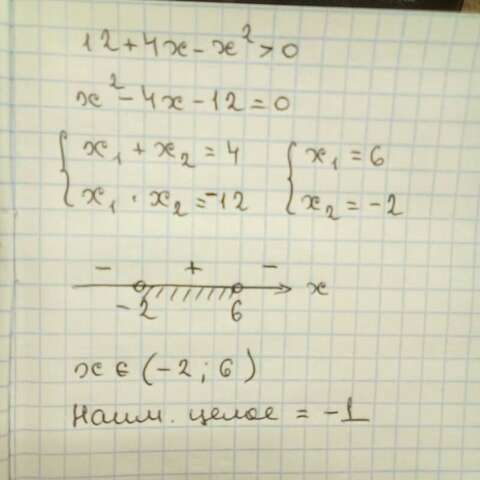 12+4x-x²>0
x²-4x-12=0
{x₁+x₂=4 {x₁=6
x₁·x₂=-12 x₂=-2
- + -
-2 6 x
x∈(-2;6)
Наим. целое = -1